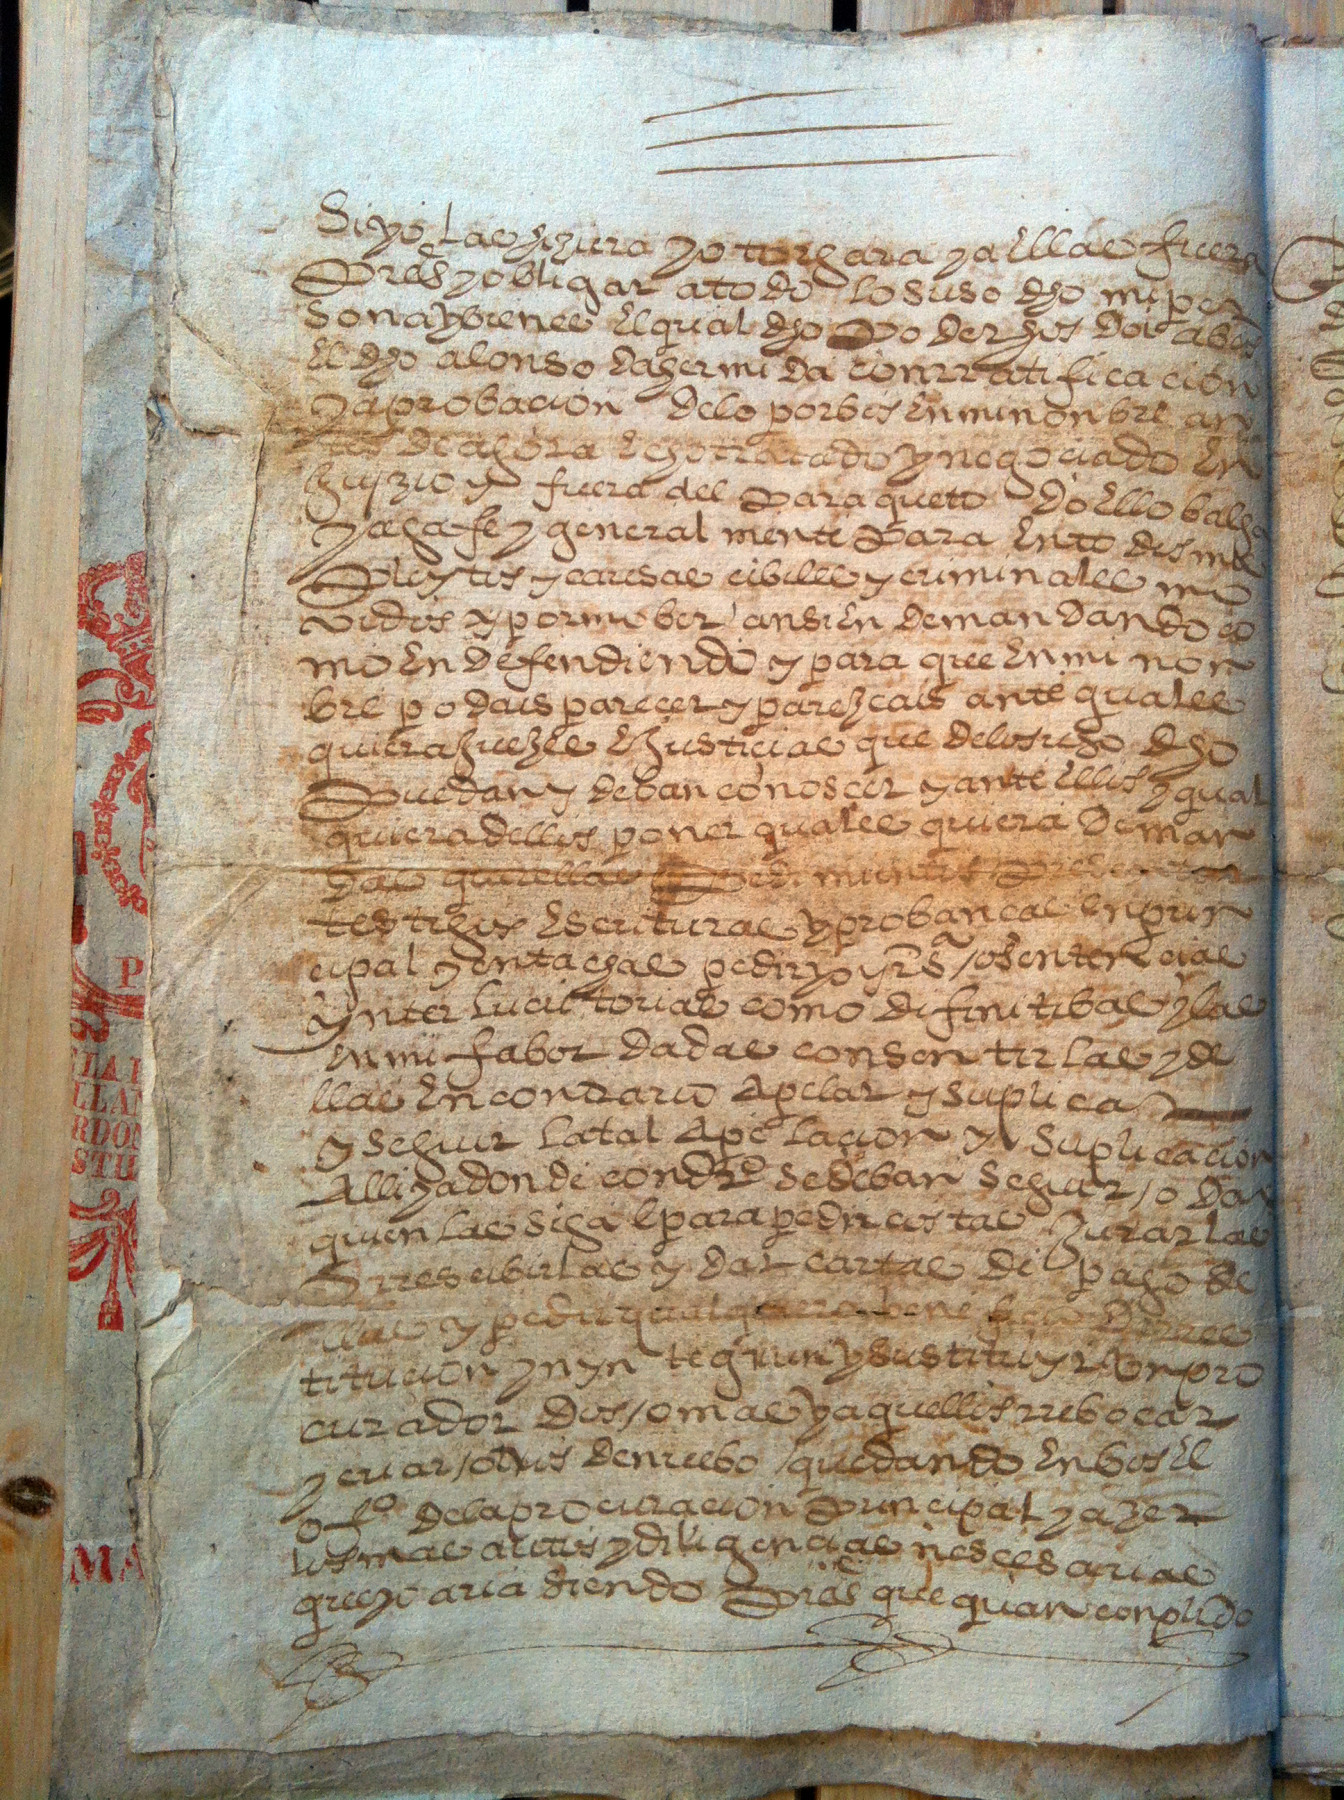 si yo las hiziera y otorgara y a ellas fuera
pres^e y obligar a todo lo suso dho mi per
sona y bienes el qual dho poder hos doi a bos
el dho alonso da hermida con rratificacion
y aprobacion de lo por bos en mi nonbre an
tes de agora hecho tratado y negociado en
juyzio y fuera del para que todo ello balga
y aga fe y general mente para en todos mis
pleytos y causas cibiles y criminales mo
vidos y por mober ansi en demandando co
mo en defendiendo y para que en mi non
bre podais parecer y parezcais ante quales
quiera juezes e justicias que de lo suso dho
puedan y deban conoscer y ante ellos y qual
quiera dellos poner quales quiera deman
das querellas pedimientos presentar
testigos escrituras y probancas en prin
cipal y en tachas pedir y oyr s^a /o sentencias
ynter lucutorias como difinitibas y las
en mi fabor dadas consentir las y de
llas en contrario apelar y suplicar
y seguir la tal apelacion y suplicacion
alli y a donde con dr^o se deban seguir /o dar
quien las siga e para pedir costas jurar las
rrescibirlas y dar cartas de pago de
llas y pedir qual quiera beneficio de rres
titucion yn yntegrun y sustituyr un pro
curador dos /o mas y aquellos rrebocar
y criar /otros de nuebo /quedando en bos el
of^o de la procuracion principal y azer
los mas autos y diligencias nescesarias
que yo aria siendo pres^e que quan conplido